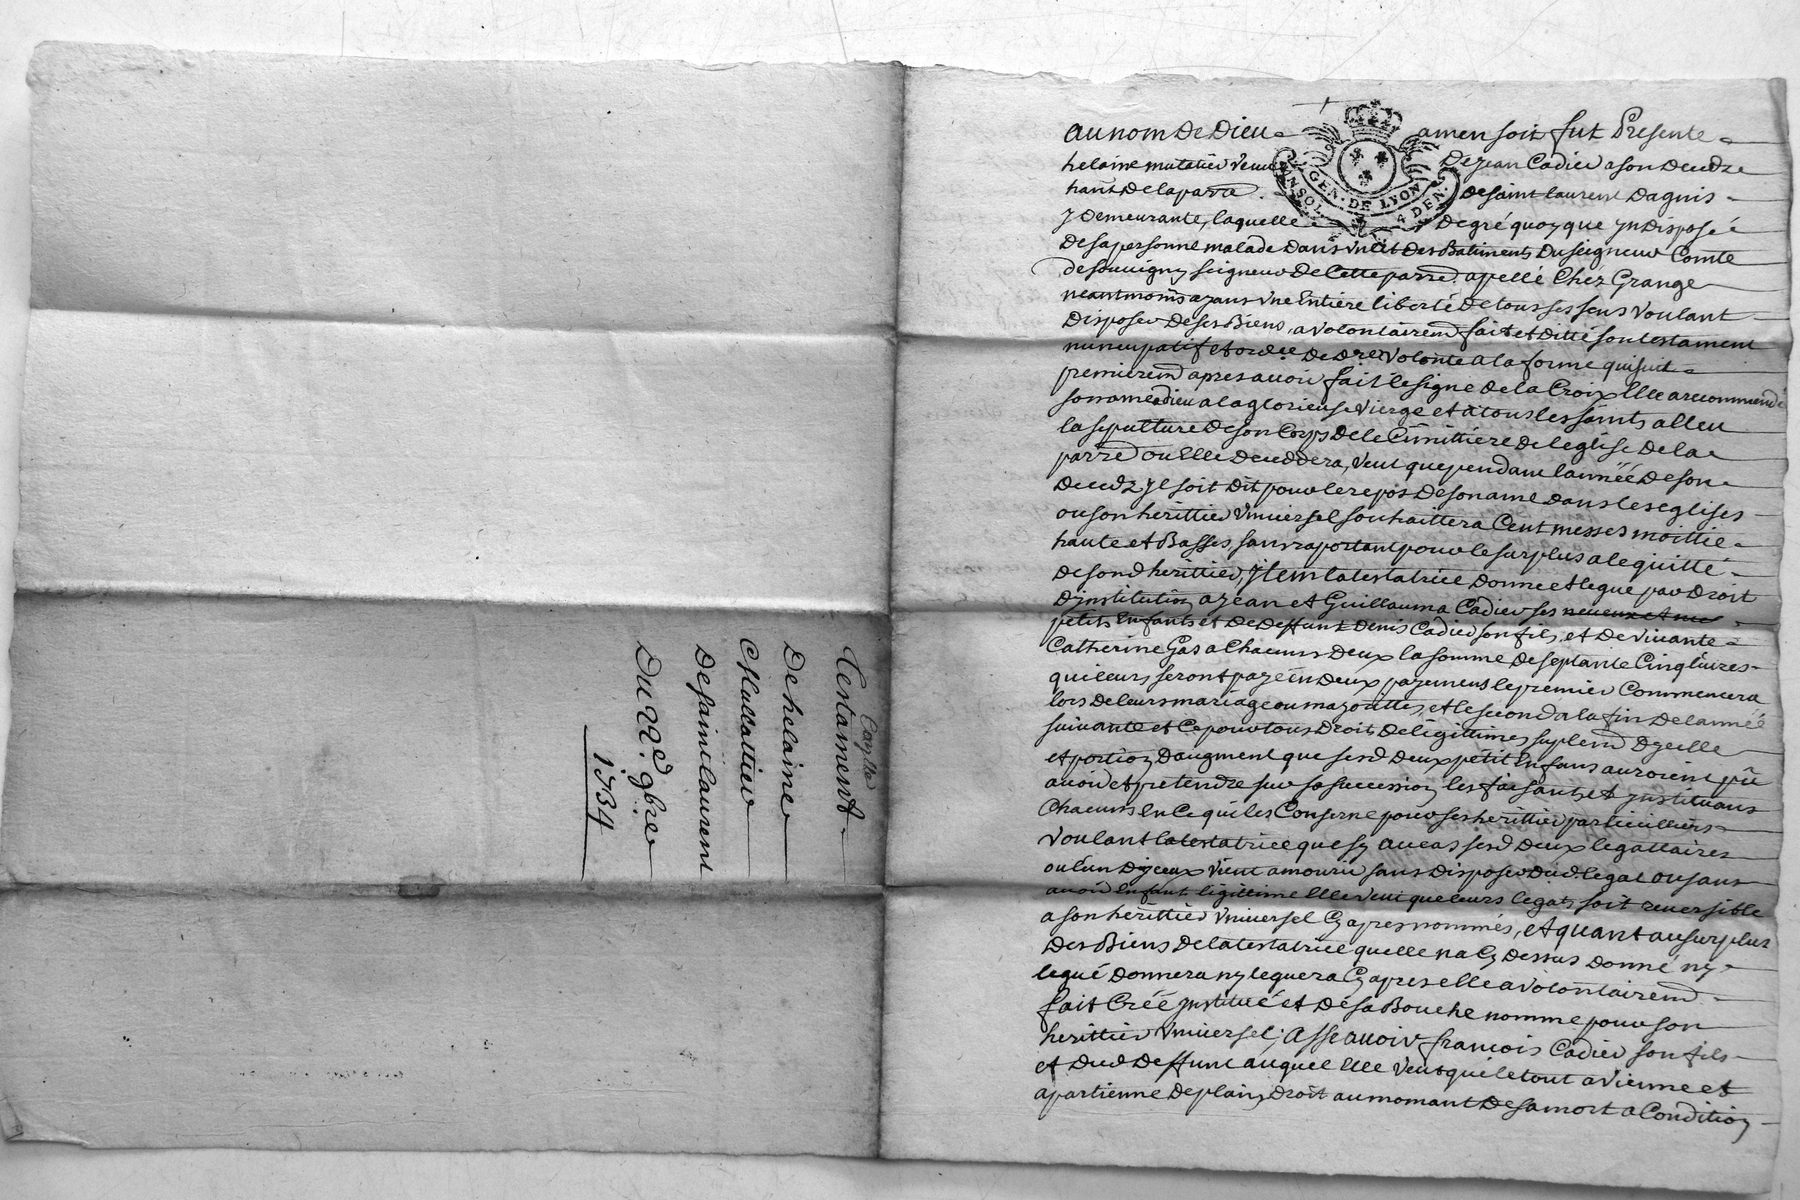 Coppie
Testament
De helaine
Mutattier
De saint Laurent
Du 22e 9bre
1734
GEN. DE LYON
4 DEN.
au nom De Dieu amen soit fut Presente
helaine mutatier veuve De jean Cadier a son Decedz
hant De la parre De saint Laurent Dagnis
y Demeurante, laquelle De gré quoy que yndisposéé
De sa personne malade Dans un lit Des Batiments Du seigneur Comte
De souvigny seigneur De Cette parre apellé Chez Grange
neantmoins ayans Une Entiere liberté De tous ses sens Voulant
Disposer De ses Biens, a volontairemt fait et Ditté son testament
nuncupatif et ordce De Dre Volonte a la forme qui suit
premieremt apres avoir fait le signe De la Croix Elle a recommendé
son ame a Dieu a la glorieuse Vierge et à tous les saints a lleu
la sepulture De son Corps De le Cimittiere De leglise De la
parre ou Elle Deceddera, Veut que pendant lannéé De son
Decedz yl soit Dit pour le repos De son ame Dans les eglises
ou son herittier Vniversel souhaittera Cent messes moittié
haute et Basses, sans raportant pour le surplus a lequitté
De sond herittier, ytem la testatrice Donne et legue par Droit
Dynstitution a jean et Guillauma Cadier ses neveux et
petits Enfants et De Deffunt Denis Cadier son fils, et De vivante
Catherine Gas a Chacuns Deux la somme De septante Cinq livres
qui leurs seront payé en Deux payemens le premier Commencera
lors De leurs mariage ou mayorittes, et le second a la fin De lannéé
suivante et Ce pour tous Droit De ligittimes suplemt Dycelle
et portion Daugment que sesd Deux petit Enfans auroient pû
avoir et pretendre sur sa succession, les faisant et ynstituans
Chacuns En Ce qui les Conserne pour ses herittier particulliers
Voulant la testatrice que sy au cas sesd Deux legattaires
ou lun Dyceux Vient a mourir sans Disposer Dud legat ou sans
avoir Enfant ligittime Elle veut que leurs legats soit reversible
a son herittier Vniversel Cy apres nommés, et quant au surplus
Des Biens De la testatrice quelle na Cy Dessus Donné ny
legué Donnera ny leguera Cy apres elle a volontairemt
fait Créé ynstitué et De sa Bouche nomme pour son
herittier Vniversel, Asseavoir françois Cadier son fils
et Dud Deffunt auquel Elle Veut que le tout avienne et
apartienne De plain Droit au momant De sa mort a Condition